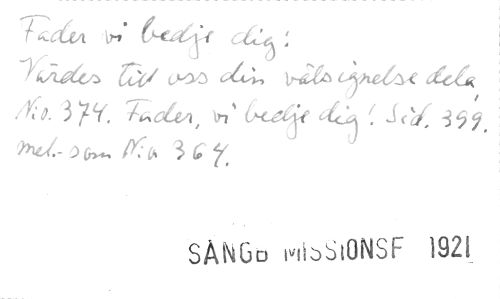 Fader vi bedje dig!
Värdes till oss din välsignelse dela,
N:o. 374. Fader, vi bedje dig! Sid. 399.
mel.- som N:o 364.
SÅNGB MISSIONSF 1921